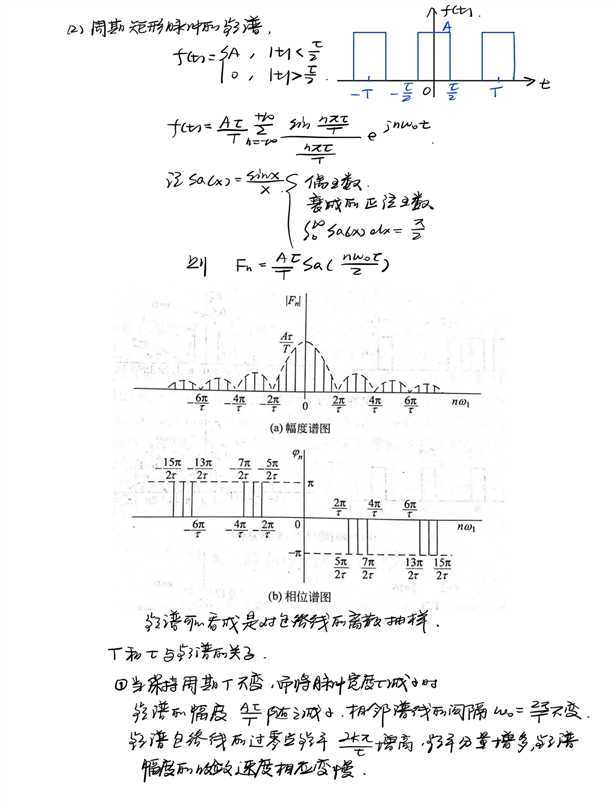 (2) 周期矩形脉冲的频谱.
f(t)
f(t) = { A , |t| < τ/2
0 , |t| > τ/2
A
-T -τ/2 0 τ/2 T t
f(t) = Aτ/T ∑_{n=-∞}^{+∞} (sin nπτ/T)/(nπτ/T) e^{jnω₀t}
记 Sa(x) = sinx/x { 偶函数.
衰减的正弦函数
∫₀^∞ Sa(x) dx = π/2
则 Fn = Aτ/T Sa( nω₀τ/2 )
|Fn|
Aτ/T
-6π/τ -4π/τ -2π/τ 0 2π/τ 4π/τ 6π/τ nω₁
(a) 幅度谱图
φn
-15π/2τ -13π/2τ -7π/2τ -5π/2τ π
2π/τ 4π/τ 6π/τ
-6π/τ -4π/τ -2π/τ 0 nω₁
-π 5π/2τ 7π/2τ 13π/2τ 15π/2τ
(b) 相位谱图
频谱可以看成是对包络线的离散抽样.
T和τ与频谱的关系.
① 当保持周期T不变, 而将脉冲宽度τ减小时
频谱的幅度 Aτ/T 随之减小. 相邻谱线的间隔 ω₀ = 2π/T 不变.
频谱包络线的过零点频率 2kπ/τ 增高. 频率分量增多, 频谱
幅度的收敛速度相应变慢.